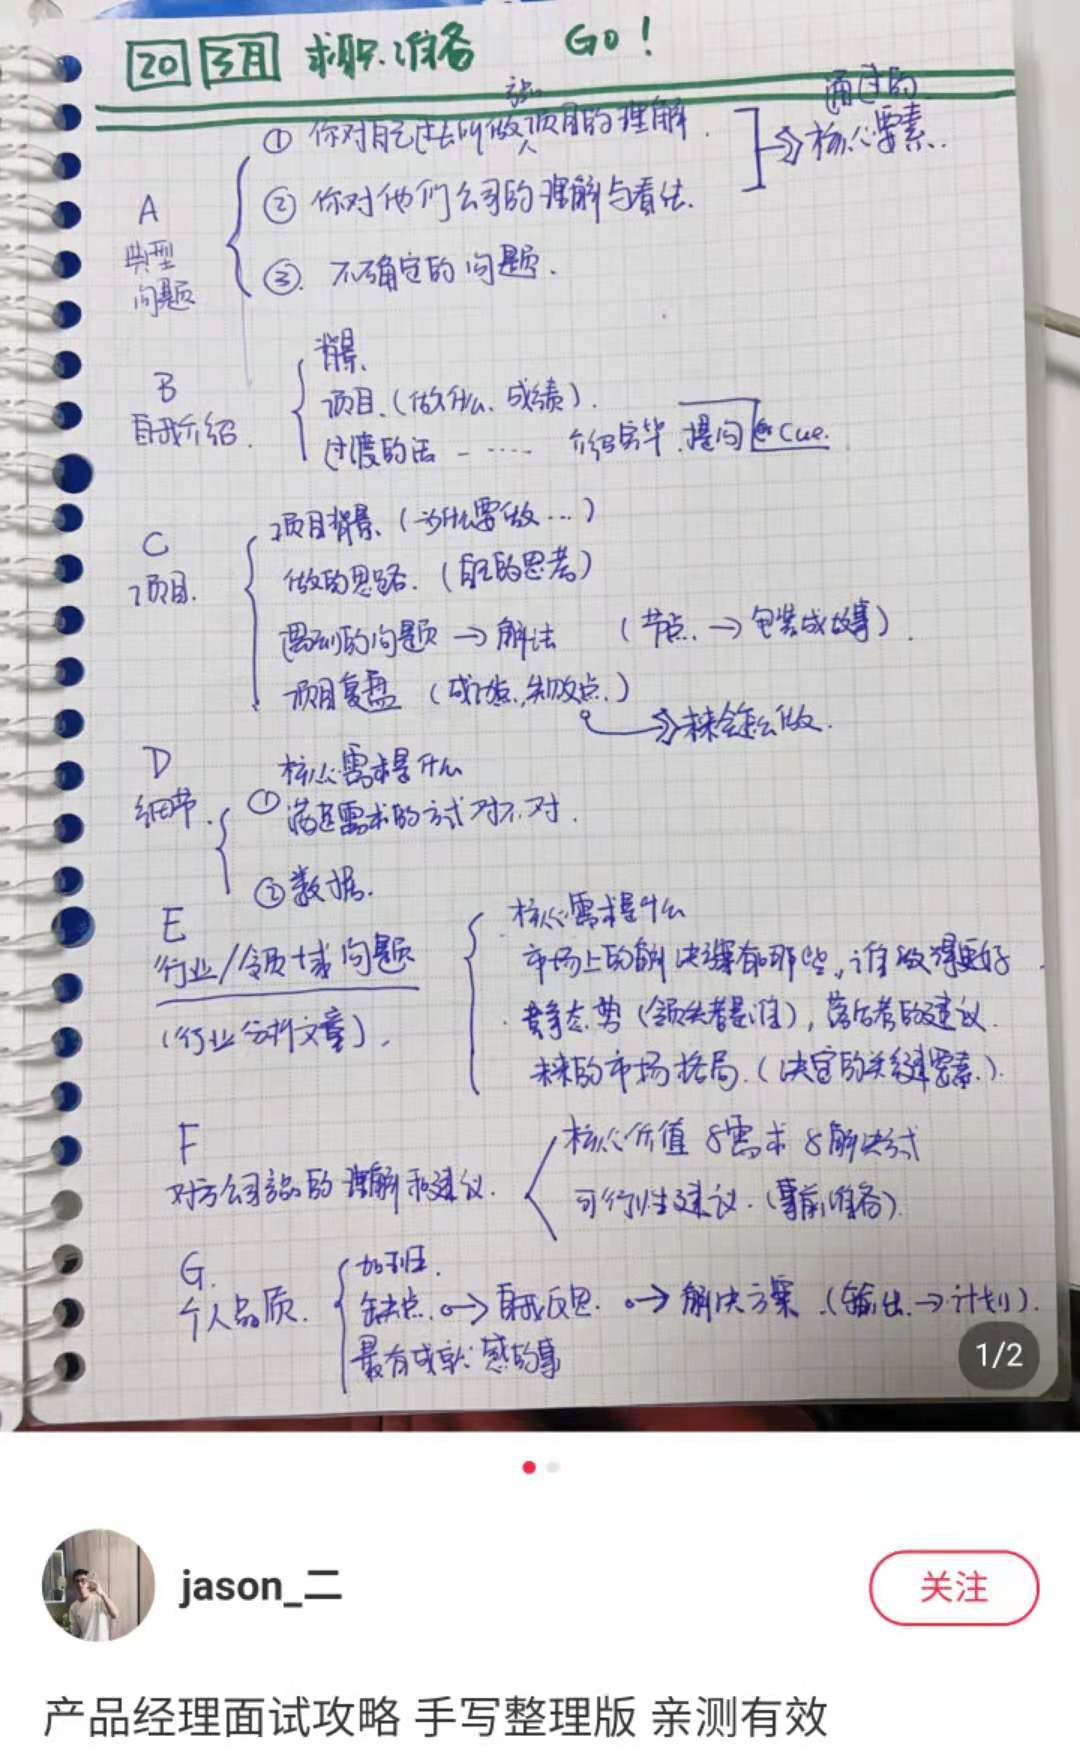 20 3月 求职准备 GO!
产品
① 你对自己过去所做项目的理解.
通过的
核心要素.
② 你对他们公司的理解与看法.
A
典型
问题
③. 不确定的问题.
背景.
B
自我介绍.
项目.(做什么、成绩).
过渡的话 - ····· 介绍完毕.提问 Cue.
C
项目.
项目背景.(为什么要做...)
做的思路.(自己的思考)
遇到的问题 → 解法 (节点.→ 包装成故事).
项目复盘 (成功点,失败点.)
→ 未来会怎么做.
D
细节.
核心需求是什么
① 满足需求的方式对不对.
② 数据.
E
行业/领域问题
(行业分析文章).
核心需求是什么
市场上的解决方案有哪些,谁做得更好
竞争态势(领先者是谁),落后者的建议.
未来的市场格局.(决定的关键要素.).
F
对方公司产品的理解和建议.
核心价值 & 需求 & 解决方式
可行性建议.(事前准备).
G.
个人品质.
加班.
缺点. → 自我反思. → 解决方案.(输出.→计划).
最有成就感的事
1/2
jason_二
关注
产品经理面试攻略 手写整理版 亲测有效